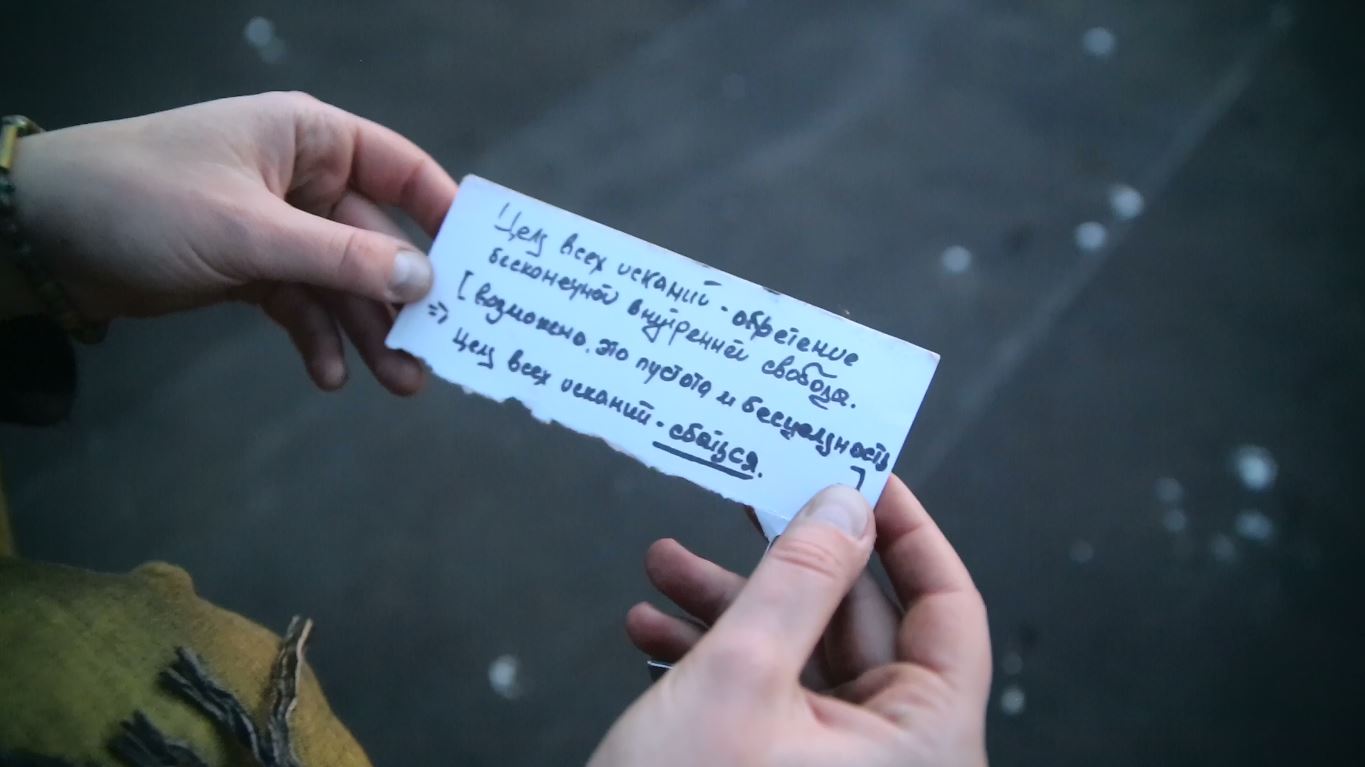 Цель всех исканий - обретение
бесконечной внутренней свободы.
[Возможно, это пустота и бесцельность]
=> Цель всех исканий - сбыться.